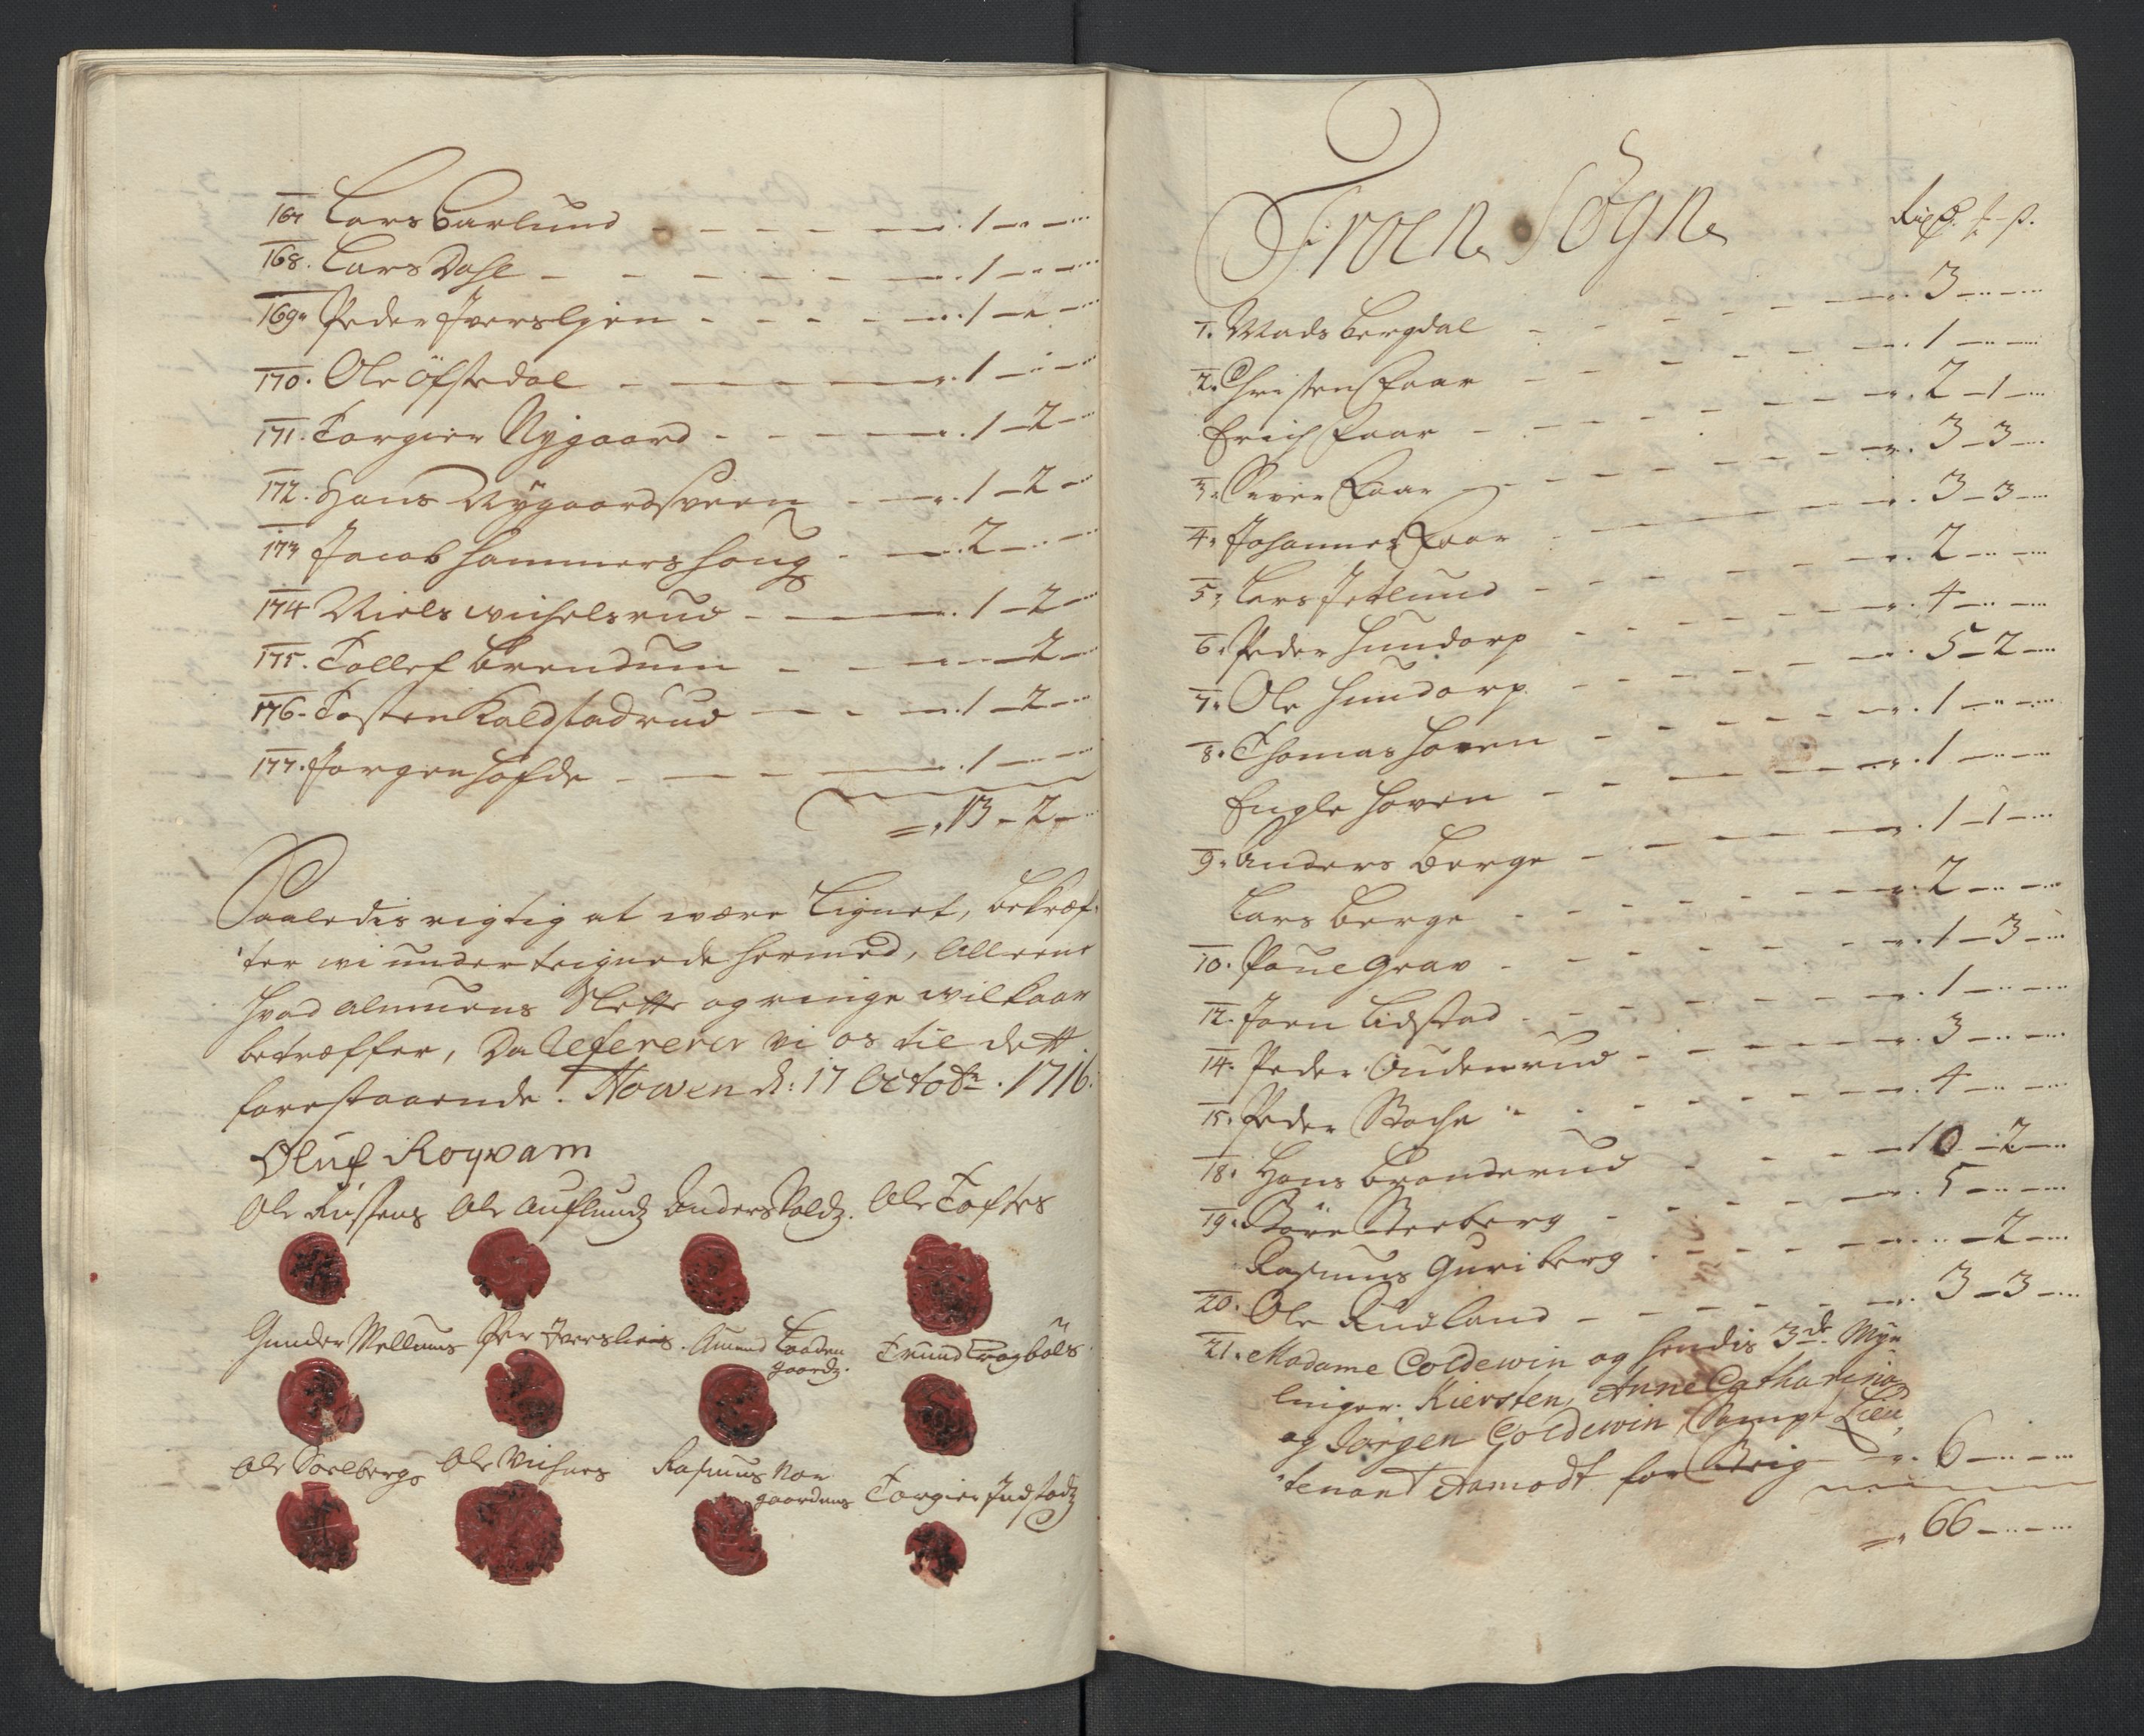 167. Lars Barlund — 1 — —
168. Lars Dahl — 1 — —
169. Peder Iverslyen — 1 — —
170. Ole Öfstedal — 1 — —
171. Torgier Nygaard — 1 — 2 —
172. Hans Nÿgaardsveen — 1 — 2 —
173 Jacob Hammershoug — 2 — —
174 Niels wichelsrud — 1 — 2 —
175. Tollef Brendum — 2 —
176. Tosten Kalstadrud — 1 — 2 —
177. Jørgen Høfde — 1 — —
13 — 2 —
Saaledis rigtig at være Lignet, bekræf-
ter wi underteignede hermed, Alleene
hvad almuens Slette og ringe wilkaar
betræffer, Da Refererer vi os til dett
forestaaende. Howen d: 17 Octobr. 1716.
Oluf Roqvam
Ole Rustens Ole Auflunds Anders Volds. Ole Toftes
Gunder Mellums Per Iversliens. Amund Laaden
gaards. Trund Bragbøls.
Ole Soelbergs Ole Rasmus Nor
gaardens Torgier Indstads
Froens Sogn Rixd. £ - s.
1. Mads Bergdal — 3 — —
2. Christen Faar — 1 — —
Erich Faar — 2 — 1 —
3. Siver Faar — 3 — 3 —
4. Johannes Faar — 3 — 3 —
5. Lars Jetlund — 2 — —
6. Peder Hundorp — 4 — —
7. Ole Hundorp — 5 — 2 —
8. Thomas Hoven — 1 — —
Engle Hoven — 1 — —
9. Anders Berge — 1 — 1 —
Lars Berge — 2 — —
10. Poul Grav — 1 — 3 —
12. Joen Lidstad — 1 — —
14. Peder Oudenrud — 3 — —
15. Peder Stoche — 4 — —
18. Hans Branderud — 10 — 2 —
19. Steeberg — 5 — —
Rasmus Guriberg — 2 —
20. Ole Rudland — 3 — 3 —
21. Madame Coldewin og hendis 3de Myn
linger. Kiersten, Anne Catharina
og Jørgen Coldewin, Sampt Lieu
tenant Aamodt for Steig — 6 — —
66 — —